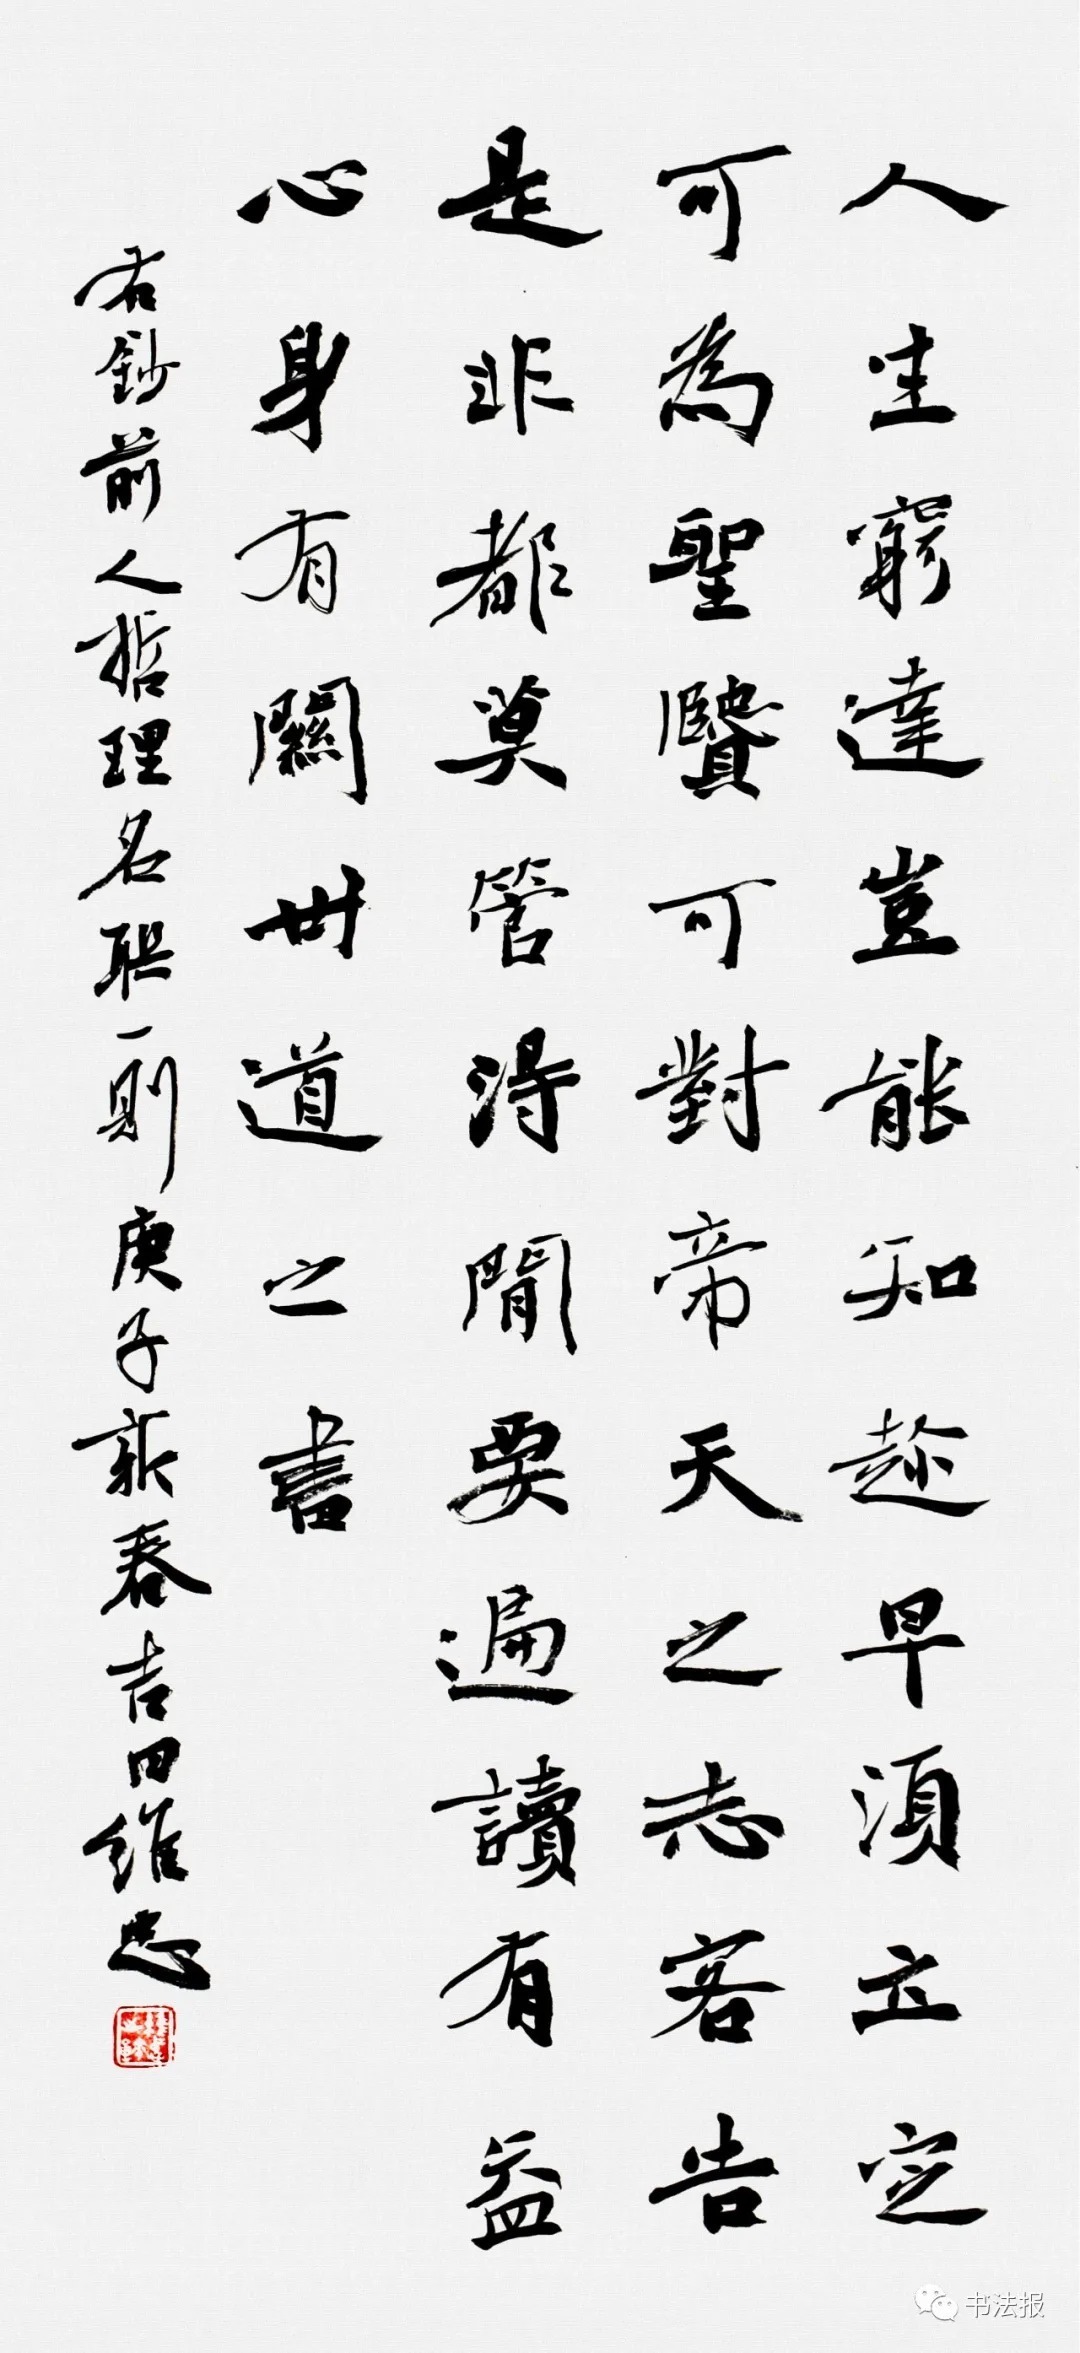 人生窮達豈能知趁早須立定
可為聖賢可對帝天之志客告
是非都莫管得閒要遍讀有益
心身有關世道之書
右鈔前人哲理名联一則庚子新春吉日維忠
书法报